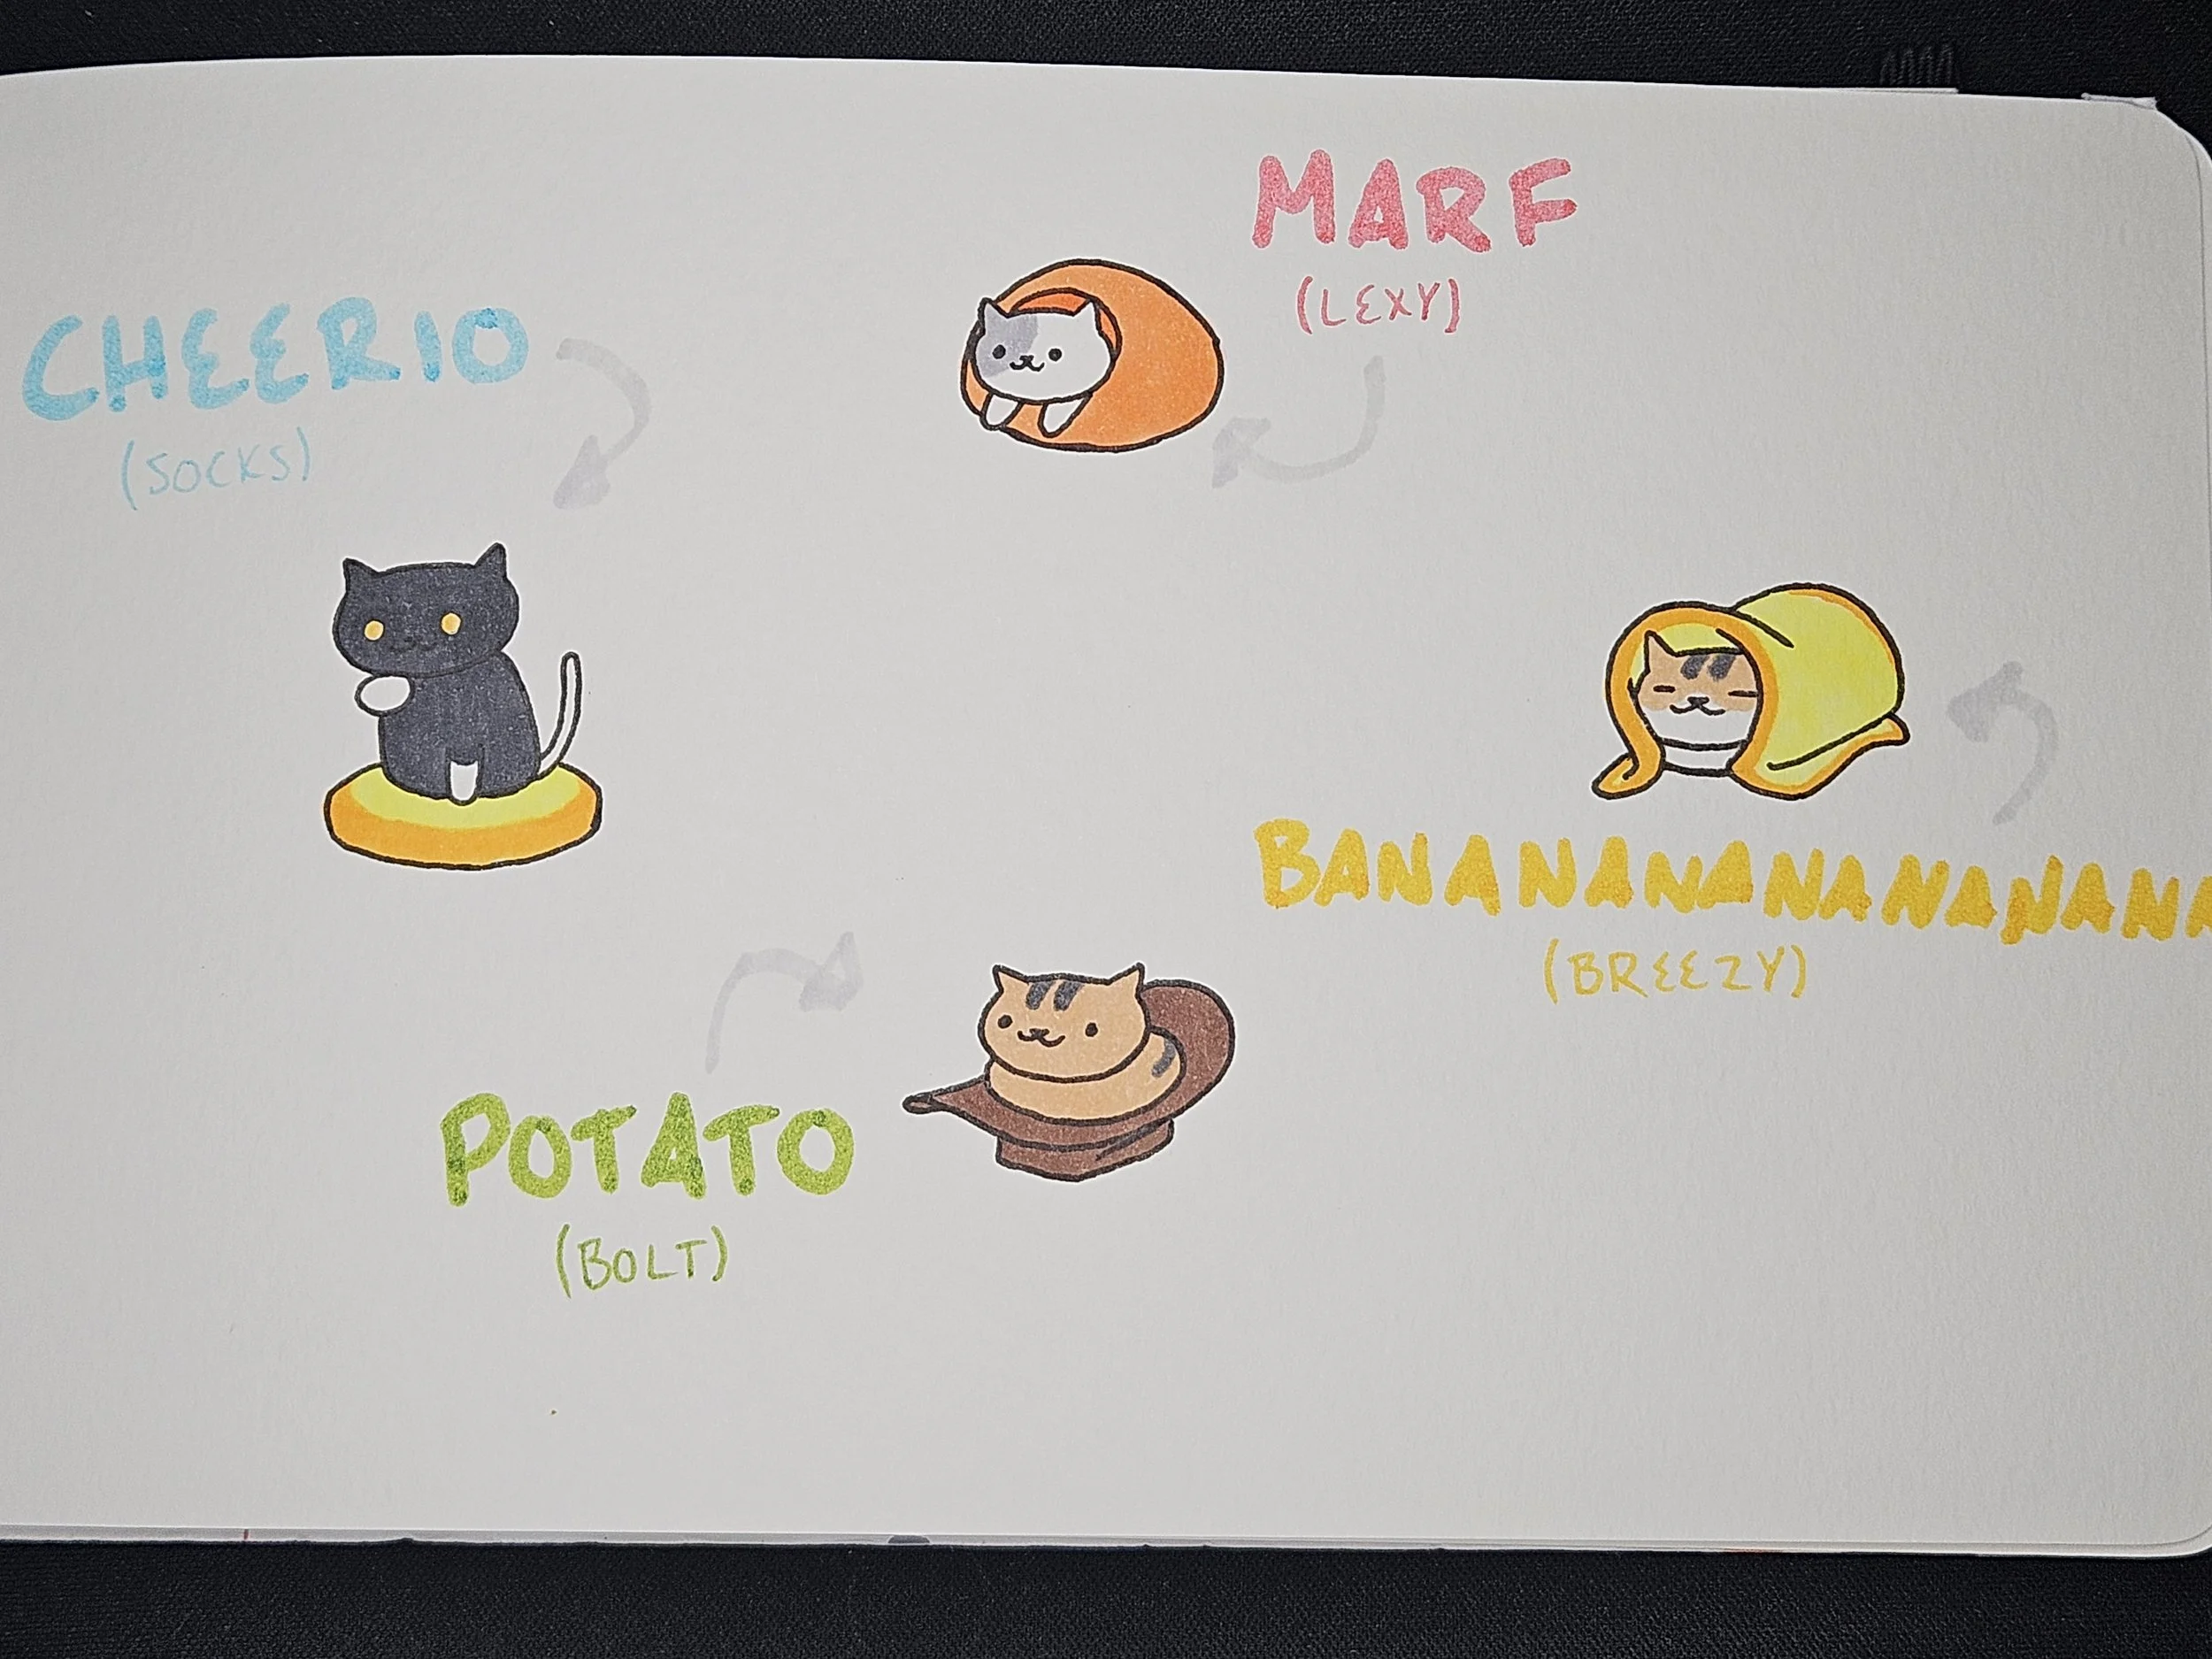 MARF
(LEXY)
CHEERIO
(SOCKS)
BANANANANANANANA
(BREEZY)
POTATO
(BOLT)